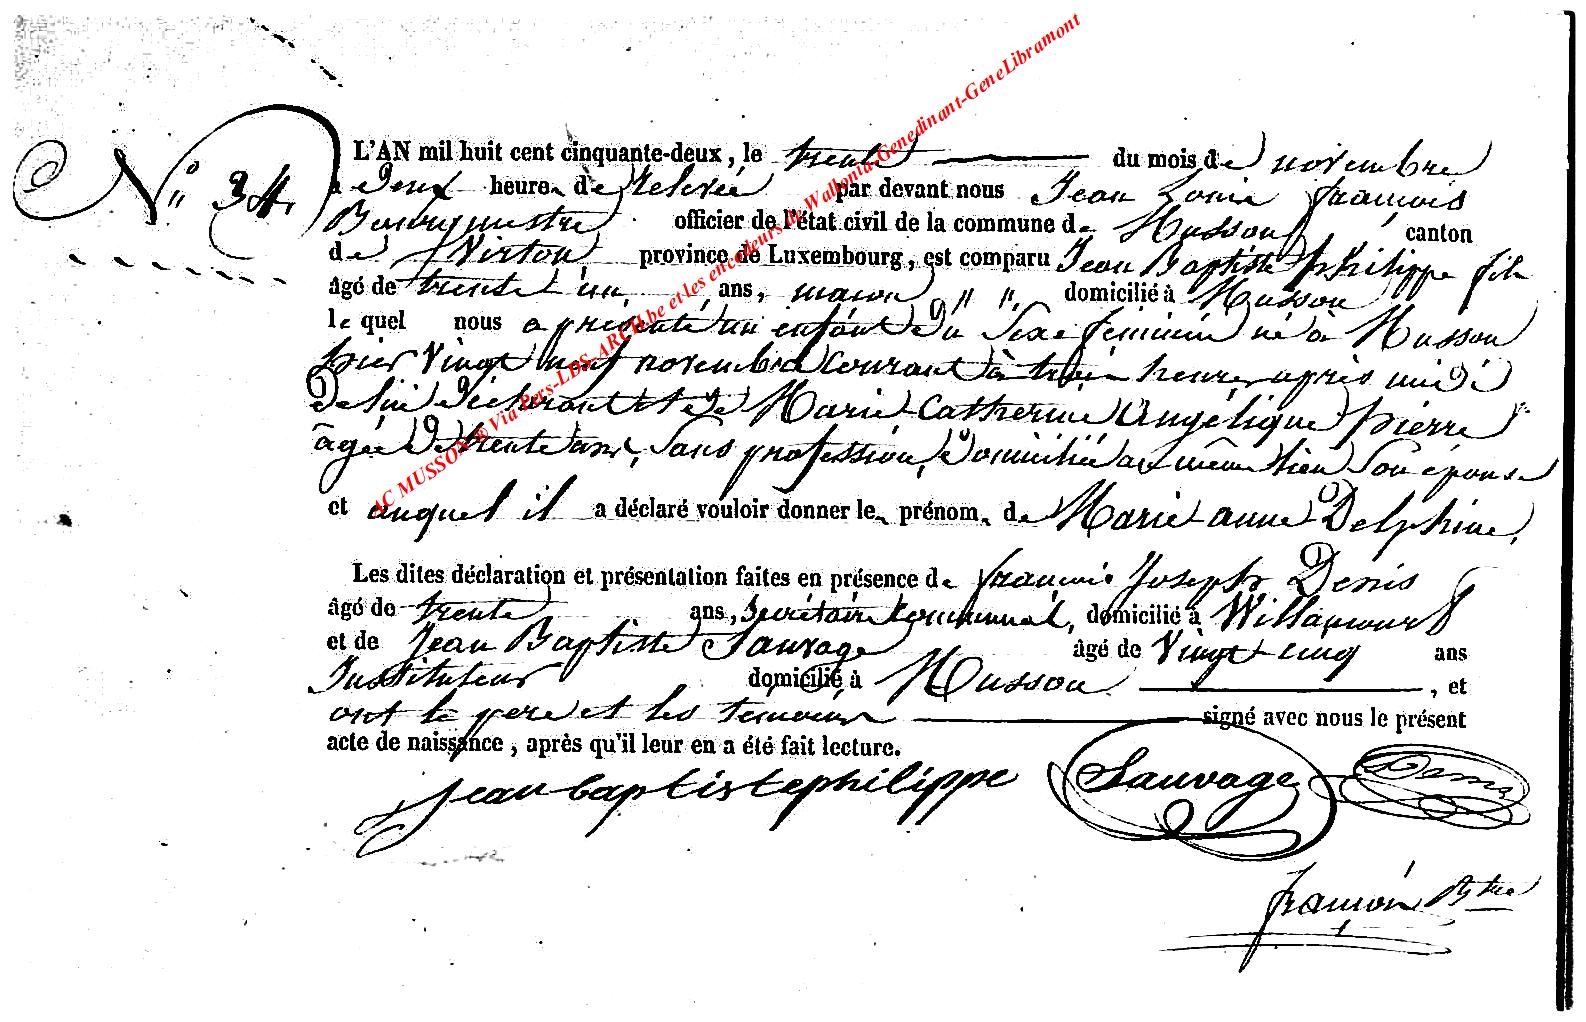 N° 34.
L'AN mil huit cent cinquante-deux, le trente du mois de novembre
à deux heure de relevée par devant nous Jean Louis françois
Bourgmestre officier de l'état civil de la commune de Musson canton
de Virton province de Luxembourg, est comparu Jean Baptiste philippe fils
âgé de trente un ans, maçon " " domicilié à Musson
lequel nous a présenté un enfant du Sexe feminin né à Musson
hier Vingt neuf novembre Courant à trois heures après midi
de lui déclarant et de Marie Catherine Angélique pierre
âgée de trente ans, Sans profession, domiciliée au même lieu Son épouse
et auquel il a déclaré vouloir donner le prénom de Marie-anne-Delphine.
Les dites déclaration et présentation faites en présence de françois Joseph Denis
âgé de trente ans, Secrétaire Communal, domicilié à Willancourt
et de Jean Baptiste Sauvage âgé de Vingt-cinq ans
Instituteur domicilié à Musson , et
ont le père et les témoins signé avec nous le présent
acte de naissance, après qu'il leur en a été fait lecture.
jean baptiste philippe Sauvage Denis
françois Bgtre
AC MUSSON @ Via Pers-LDS-ARCH.be et les encodeurs de Wallonia-Genedinant-GeneLibramont